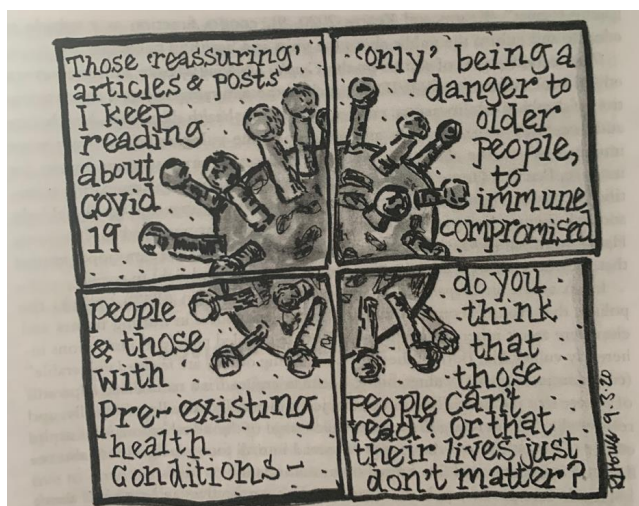 Those 'reassuring'
articles & posts
I keep
reading
about
Covid
19
'only' being a
danger to
older
people,
to
immune
compromised
people
& those
with
pre-existing
health
conditions-
do you
think
that
those
people can't
read? Or that
their lives just
don't matter?
9.3.20